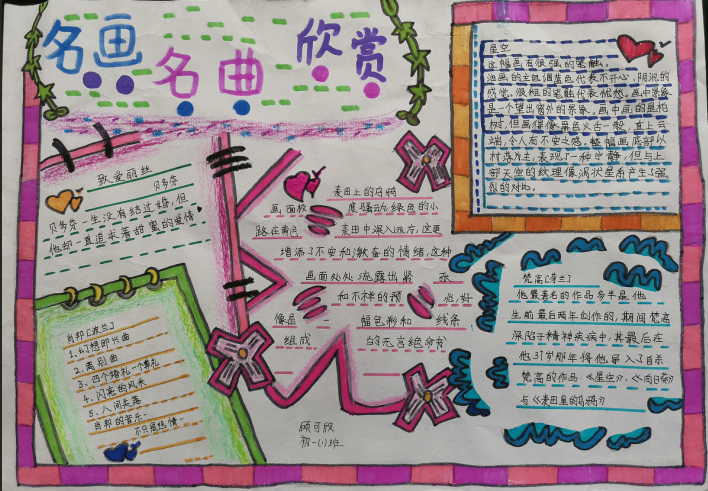 名画名曲欣赏
致爱丽丝
贝多芬
贝多芬一生没有结过婚,但
他却一直追求着甜蜜的爱情
肖邦[波兰]
1、幻想即兴曲
2、离别曲
3、四个婚礼一个葬礼
4、闪亮的风采
5、人间失落
肖邦的音乐一
不只是纯情一
麦田上的乌鸦
画面极度骚动,绿色的小
路在黄色麦田中深入远方,这更
增添了不安和激奋的情绪,这种
画面处处流露出紧张
和不祥的预兆,好
像是一幅色彩和线条
组成的无言绝命书
顾可欣
初一(1)班
星空
这幅画有很强的笔触。
油画的主色调蓝色代表不开心、阴沉的
感觉。很粗的笔触代表忧愁。画中景象
是一个望出窗外的景象。画中画的是柏
树,但画得像黑色火舌一般,直上云
端,令人有不安之感。整幅画底部以
村落为主,表现了一种宁静,但与上
部天空的纹理像涡状星系产生了强
烈的对比。
梵高[荷兰]
他最著名的作品多半是他
生前最后两年创作的,期间梵高
深陷于精神疾病中,其最后在
他37岁那年将他导入了自杀
梵高的作品《星空》、《向日葵》
与《麦田里的乌鸦》